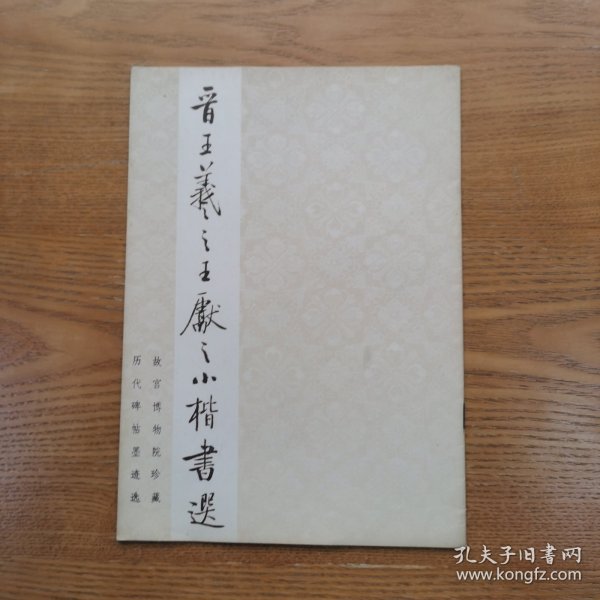 晋王羲之王獻之小楷書選
故宫博物院珍藏
历代碑帖墨迹选
孔夫子旧书网
www.kongfz.com